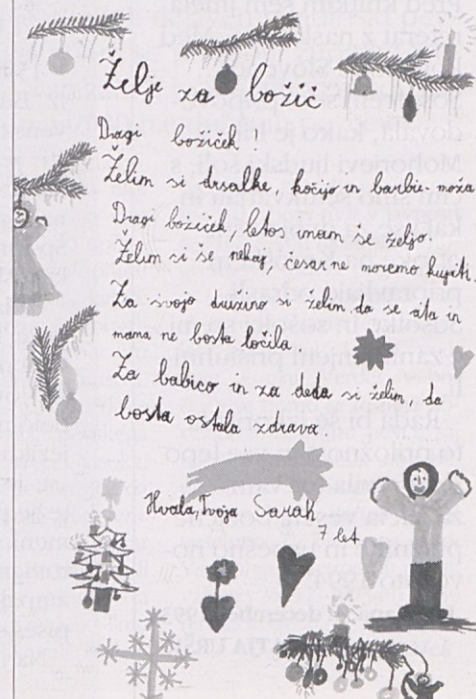 Želje za božič
Dragi božiček!
Želim si drsalke, kočijo in barbie-moža
Dragi božiček, letos imam še željo.
Želim si še nekaj, česar ne moremo kupiti.
Za svojo družino si želim, da se ata in
mama ne bosta ločila.
Za babico in za deda si želim, da
bosta ostala zdrava.
Hvala, Tvoja Sarah
7 let